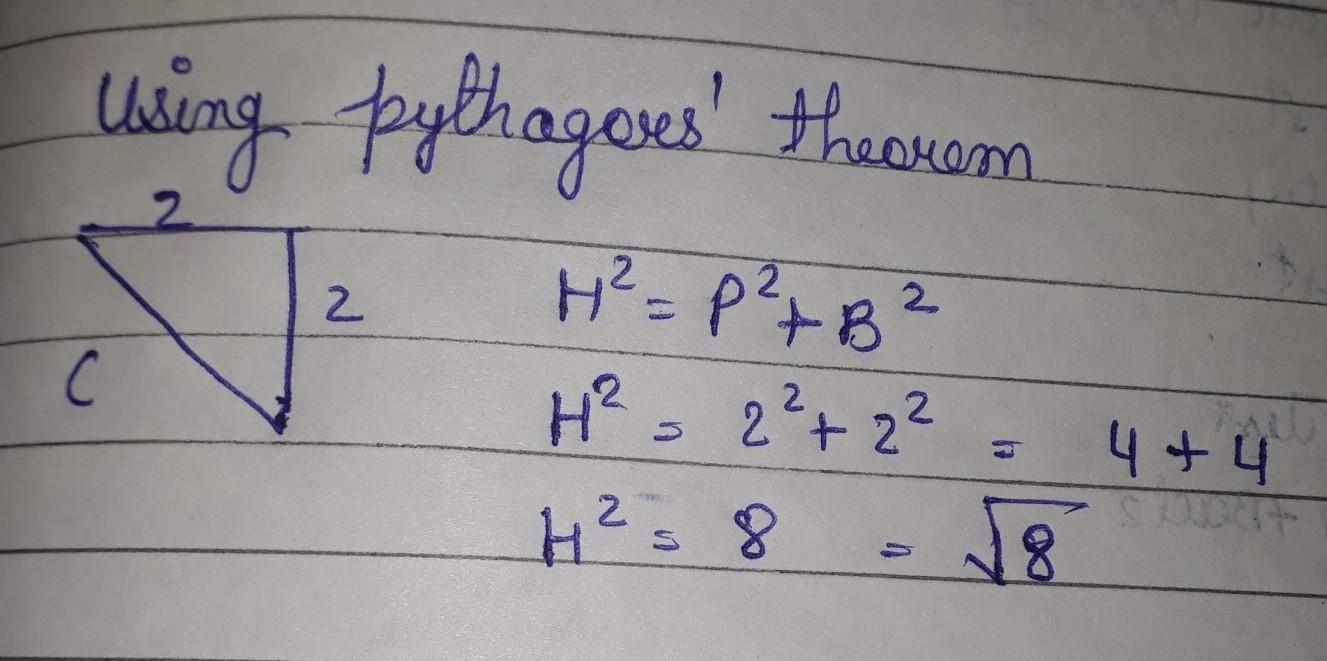 Using pythagores' theorem
2
2
C
H² = P² + B²
H² = 2² + 2² = 4 + 4
H² = 8 = √8